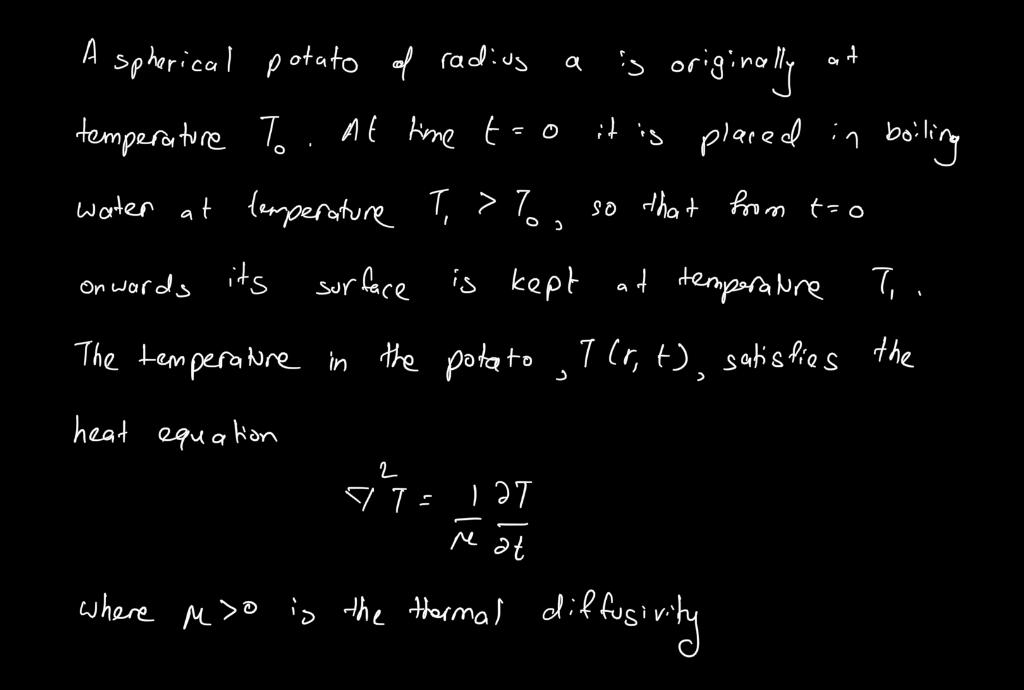 A spherical potato of radius a is originally at
temperature T₀. At time t = 0 it is placed in boiling
water at temperature T₁ > T₀, so that from t = 0
onwards its surface is kept at temperature T₁.
The temperature in the potato, T(r, t), satisfies the
heat equation
∇²T = 1/μ ∂T/∂t
where μ > 0 is the thermal diffusivity